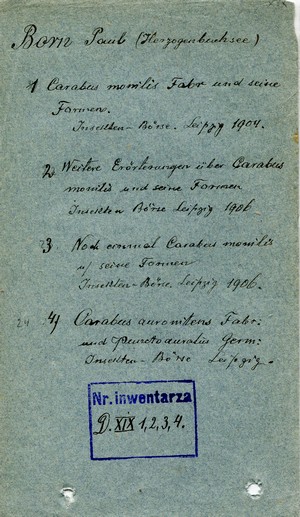 Born Paul (Herzogenbuchsee)
1 Carabus monilis Fabr und seine
Formen.
Insekten-Börse. Leipzig 1904.
2. Weitere Erörterungen über Carabus
monilis und seine Formen
Insekten Börse Leipzig 1906
3 Noch einmal Carabus monilis
u. seine Formen
Insekten-Börse. Leipzig 1906.
4) Carabus auronitens Fabr.
und Punctoauratus Germ:
Insekten-Börse Leipzig.
Nr. inwentarza
D. XIX 1, 2, 3, 4.